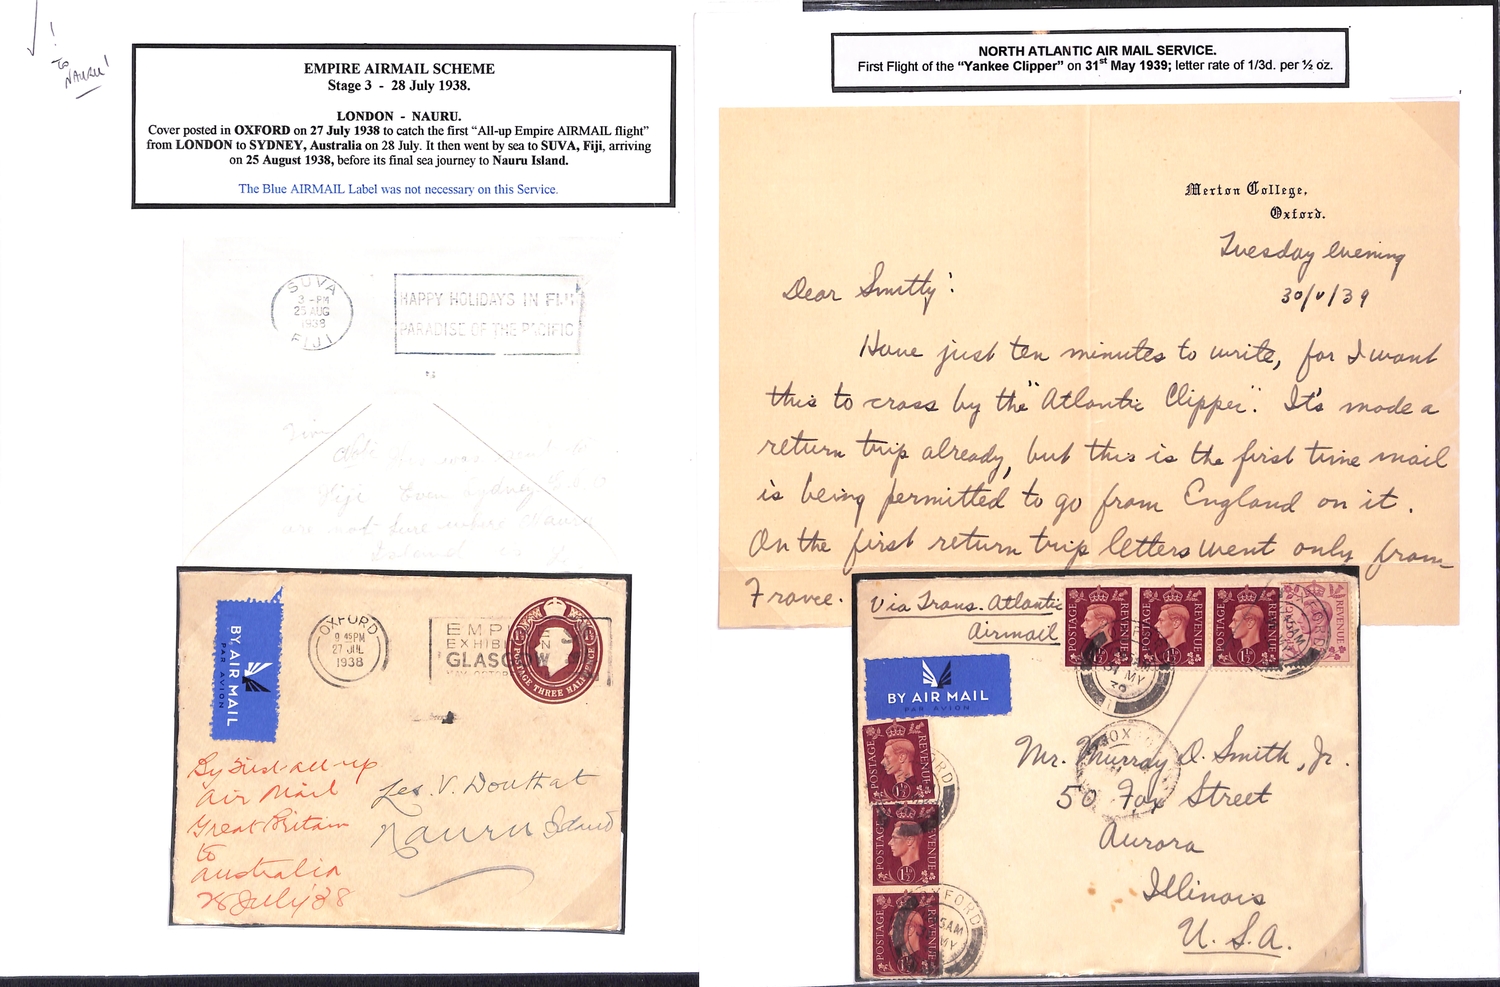 !
To
NAURU!
EMPIRE AIRMAIL SCHEME
Stage 3 - 28 July 1938.
LONDON - NAURU.
Cover posted in OXFORD on 27 July 1938 to catch the first “All-up Empire AIRMAIL flight”
from LONDON to SYDNEY, Australia on 28 July. It then went by sea to SUVA, Fiji, arriving
on 25 August 1938, before its final sea journey to Nauru Island.
The Blue AIRMAIL Label was not necessary on this Service.
SUVA
3 - PM
25 AUG
1938
FIJI
HAPPY HOLIDAYS IN FIJI
PARADISE OF THE PACIFIC
Fiji Even Sydney G.P.O
are not sure where Nauru
Island
BY AIR MAIL
PAR AVION
OXFORD
9 45PM
27 JUL
1938
EMP
EXHIB N
GLASGOW
POSTAGE THREE HALFPENCE
By First all-up
Air Mail
Great Britain
to
Australia
28 July '38
Les. V. Douthat
Nauru Island
NORTH ATLANTIC AIR MAIL SERVICE.
First Flight of the “Yankee Clipper” on 31st May 1939; letter rate of 1/3d. per ½ oz.
Merton College,
Oxford.
Tuesday evening
30/V/39
Dear Smitty:
Have just ten minutes to write, for I want
this to cross by the "Atlantic Clipper". It's made a
return trip already, but this is the first time mail
is being permitted to go from England on it.
On the first return trip letters went only from
France.
Via Trans-Atlantic
Airmail
POSTAGE REVENUE 1½D
POSTAGE REVENUE 1½D
POSTAGE REVENUE 1½D
31 MY
39
BY AIR MAIL
PAR AVION
POSTAGE REVENUE 1½D
POSTAGE REVENUE 1½D
POSTAGE REVENUE
OXFORD
AM
MY
Mr. Murray D. Smith, Jr.
50 Fox Street
Aurora
Illinois
U.S.A.